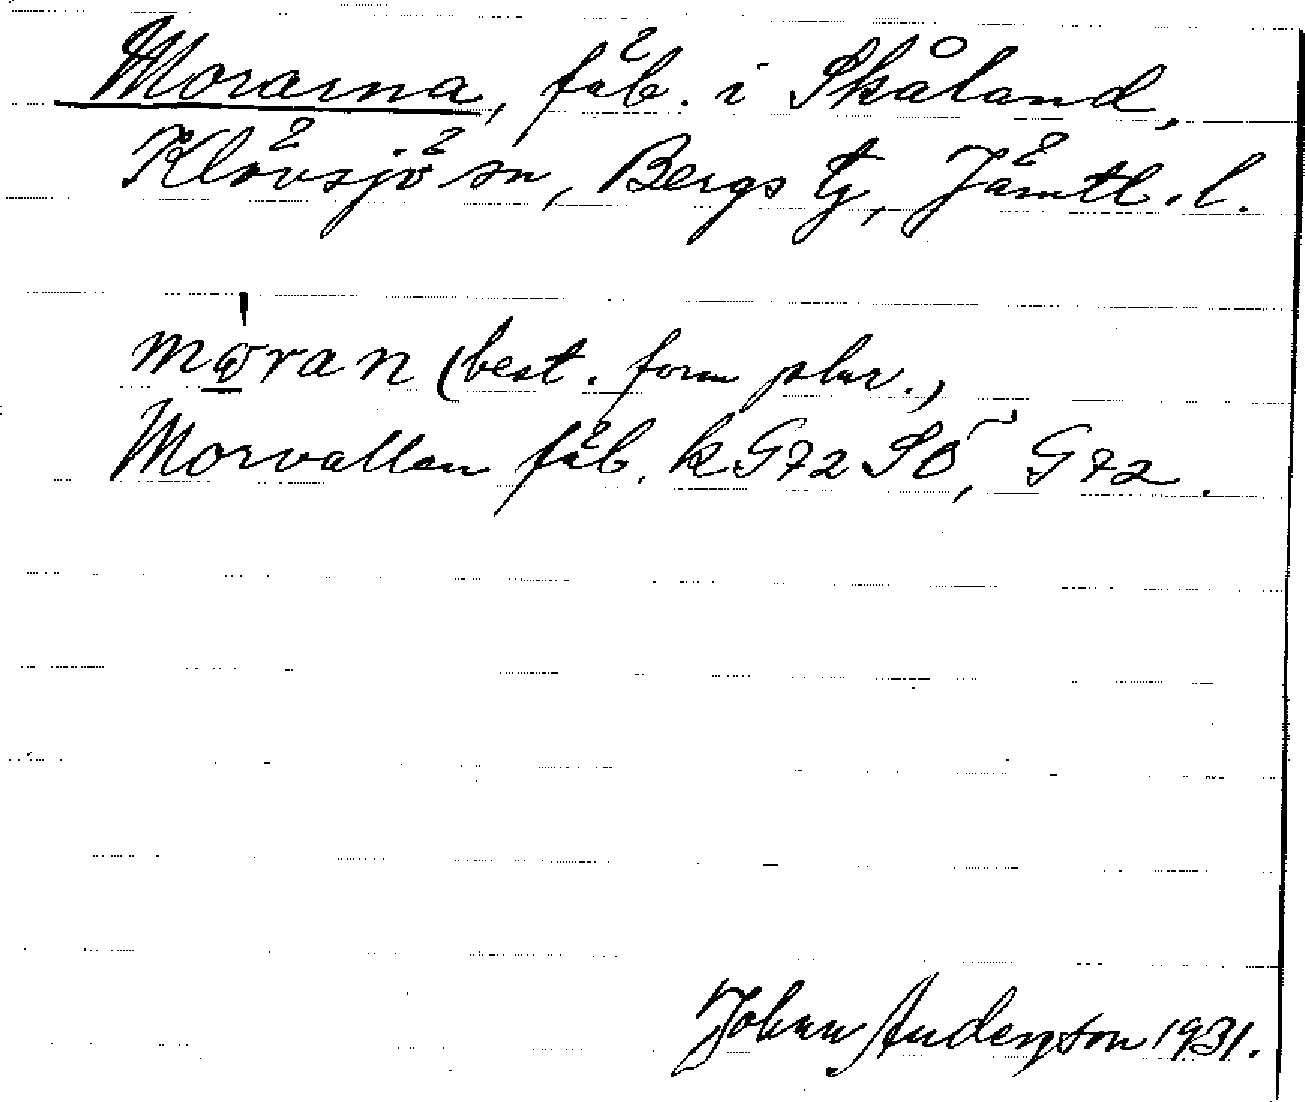 Morarna, fäb. i Skåland,
Klövsjö sn, Bergs tg, Jämtl. l.
mɷran (best. form plur.,
Morvallen fäb. k G72 SÖ, G72.
Johan Anderson 1931.